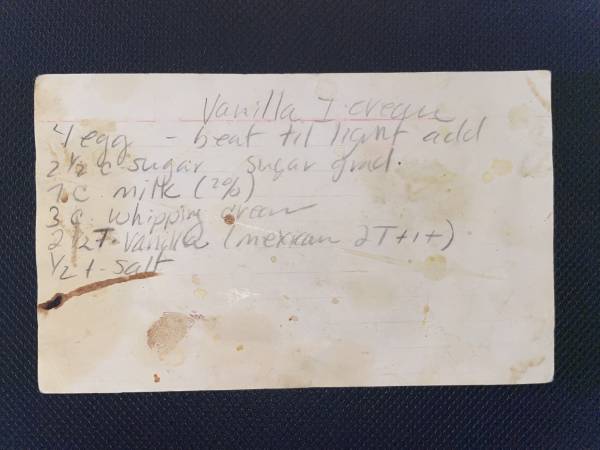 Vanilla I. cream
4 egg - beat til light add
2 1/2 c sugar sugar grad.
7 c milk (2%)
3 c. whipping cream
2 1/2 T. Vanilla (mexican 2T+1t)
1/2 t. salt